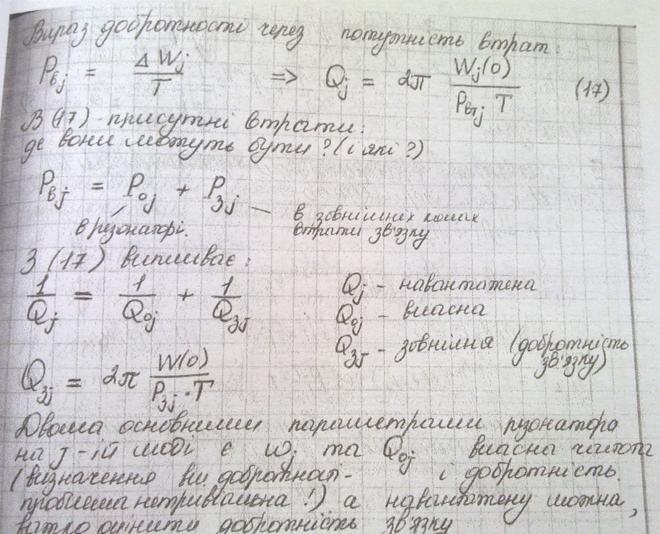 Вираз добротності через потужність втрат:
P_вj = ΔW_j / T => Q_j = 2π W_j(0) / P_втj T (17)
В (17) - присутні втрати:
де вони можуть бути? (і які?)
P_вj = P_0j + P_зj — в зовнішніх колах
в резонаторі. втрати зв'язку
З (17) випливає:
1/Q_j = 1/Q_0j + 1/Q_зj
Q_j - навантажена
Q_0j - власна
Q_зj - зовнішня (добротність
зв'язку)
Q_зj = 2π W(0) / P_зj · T
Двома основними параметрами резонатора
на j-ій моді є ω_j та Q_0j власна частота
(визначення вл. добротності- і добротність.
проблема нетривіальна!) а навантажену можна,
варто оцінити добротність зв'язку